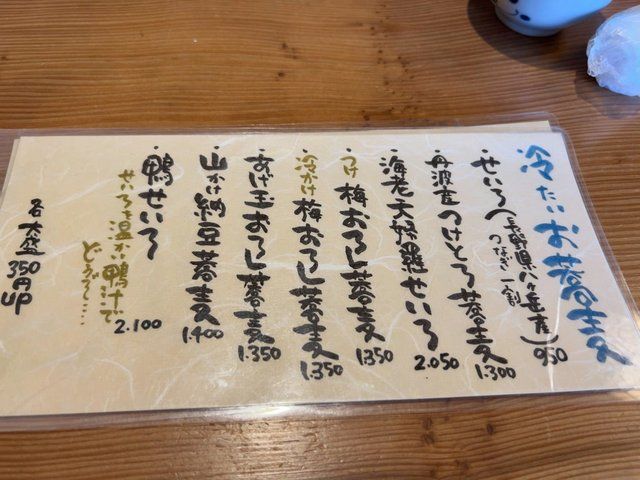 冷たいお蕎麦
・せいろ(長野県八ヶ岳産)950
つなぎ一割
・丹波産つけとろ蕎麦1.300
・海老天婦羅せいろ2.050
・つけ梅おろし蕎麦1350
・冷かけ梅おろし蕎麦1.350
・あげ玉おろし蕎麦1.350
・山かけ納豆蕎麦1.400
・鴨せいろ
せいろを温かい鴨汁で
どうぞ〜…
2.100
各大盛350円UP